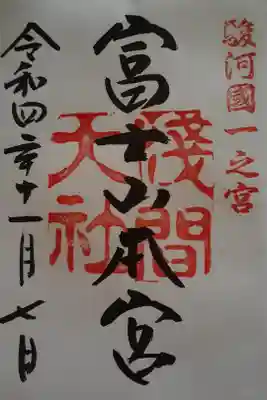 駿河國一之宮
富士山本宮
淺間大社
令和四年十一月七日